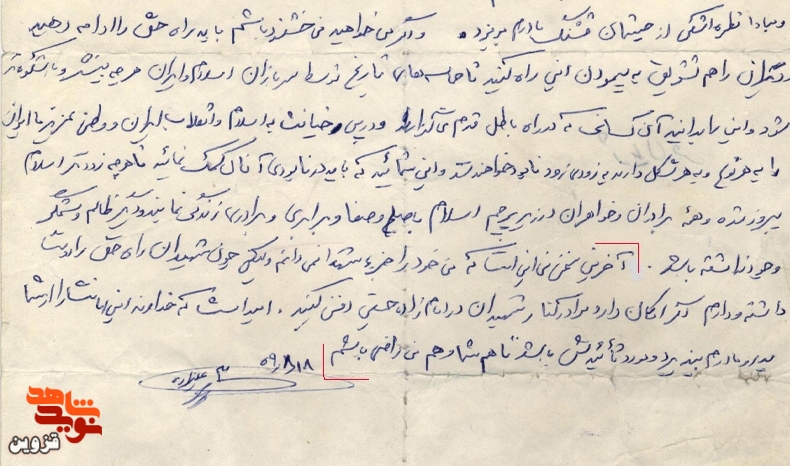 و مبادا قطره اشکی از چشمهای قشنگ مادرم بریزد. و اگر می خواهید من خشنود باشم باید راه حق را ادامه دهید
دیگران را هم تشویق به پیمودن این راه کنید تا حماسه های تاریخ توسط سربازان اسلام و ایران هر چه بیشتر و باشکوه تر
شود و این را بدانید آن کسانی که در راه باطل قدم می گذارند و درپی خیانت به اسلام و انقلاب ایران و وطن عزیز ما ایران
را به هر نوع و به هر شکل دارند به زودی زود نابود خواهند شد و این شمائید که باید در نابودی آنان کمک نمائید تا هر چه زودتر اسلام
پیروز شده و همۀ برادران و خواهران در زیر پرچم اسلام با صلح و صفا و برابری و برادری زندگی نمایند و دیگر ظالم و ستمگر
وجود نداشته باشد. آخرین سخن من این است که من خود را جزء شهدا نمی دانم ولیکن چون شهیدان راه حق را دوست
داشته و دارم اگر امکان دارد مرا در کنار شهیدان در امام زاده حسین دفن کنید. امید است که خداوند این ایثار را از شما
پدر و مادرم بپذیرد و مورد تأئیدش باشد تا هم شما و هم من راضی باشم
۵۹/۸/۱۸
شاهد
نوید
قزوین